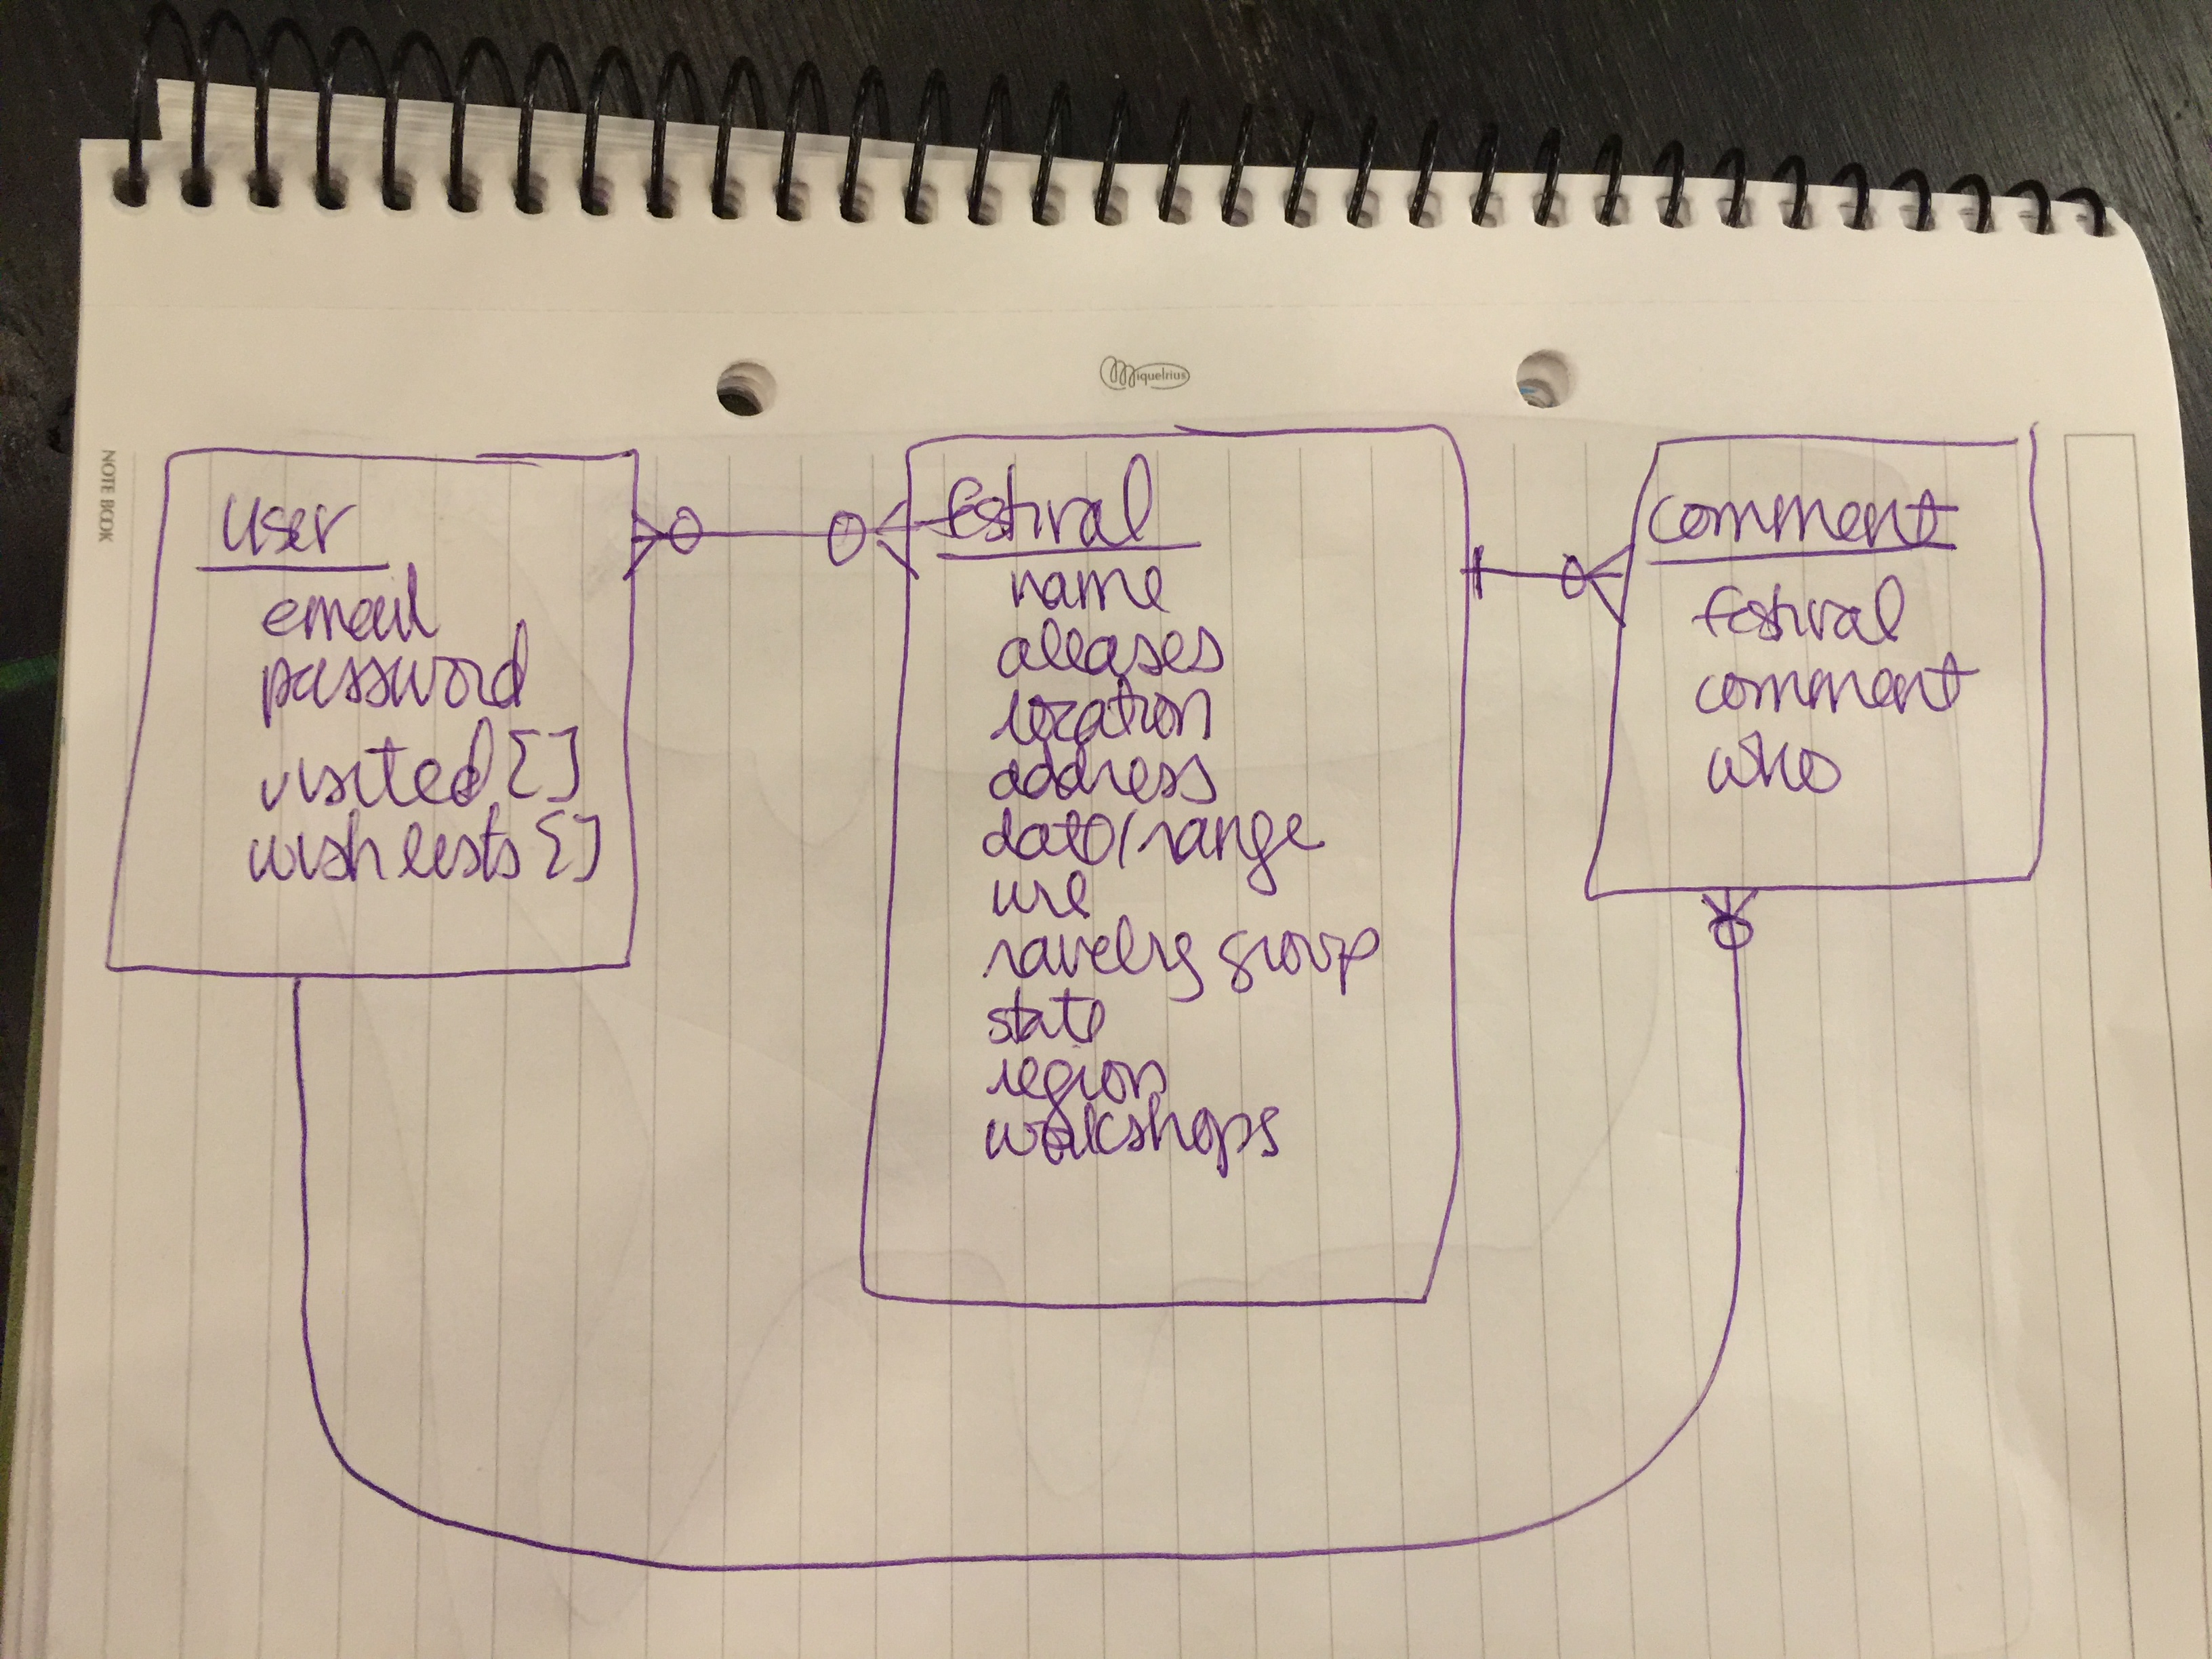 NOTE BOOK
Miquelrius
User
email
password
visited []
wishlists []
festival
name
aliases
location
address
date/range
url
ravelry group
state
region
workshops
Comment
festival
comment
who